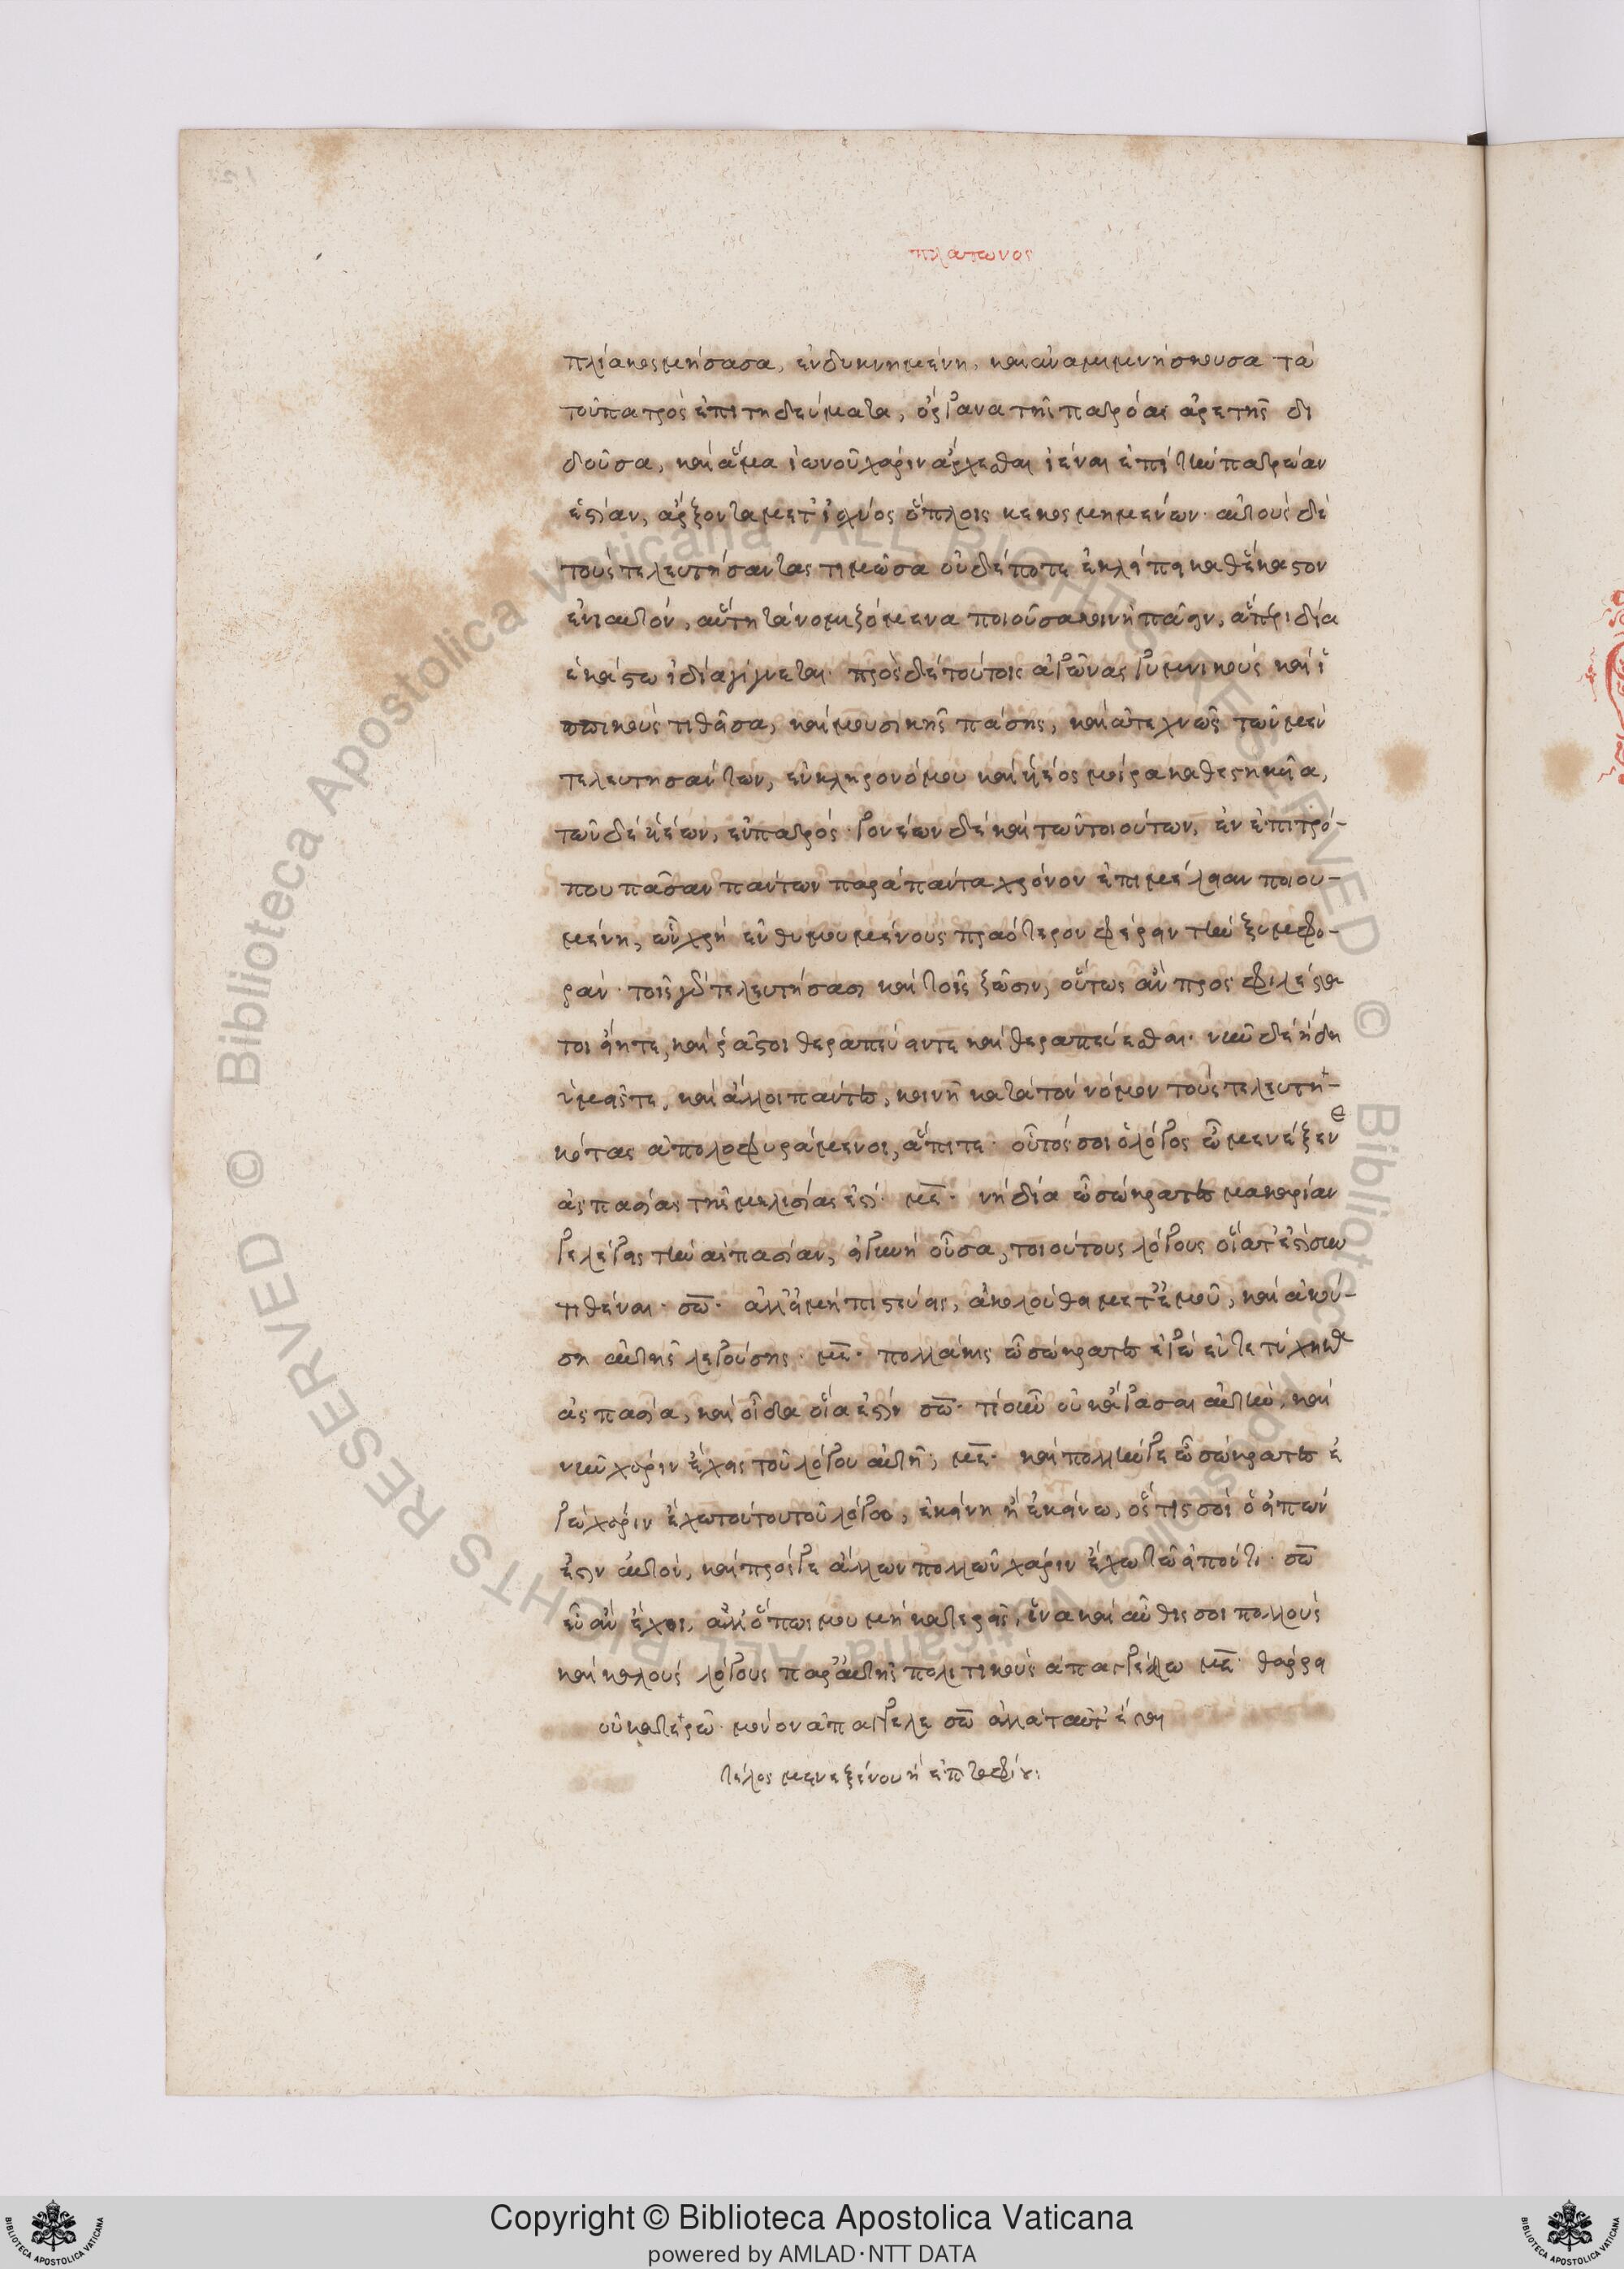 πλάτωνος
πλία κοσμήσασα, ἐνδυκνημένη, καὶ ἀναμιμνήσκουσα τὰ
τοῦ πατρὸς ἐπιτηδεύματα, ὄργανα τῆς πατρώας ἀρετῆς δι
δοῦσα, καὶ ἅμα ἰωνοῦ χάριν ἄρχεσθαι ἰέναι ἐπὶ τὴν πατρώαν
ἑστίαν, ἄρξοντα μετ' ἰσχύος ὅπλοις κεκοσμημένων· αὐτοὺς δὲ
τοὺς τελευτήσαντας τιμῶσα οὐδέποτε ἐκλείπει καθ' ἕκαστον
ἐνιαυτόν, αὕτη τὰ νομιζόμενα ποιοῦσα κοινῇ πᾶσιν, ἅπερ ἰδία
ἑκάστω ἰδία γίγνεται· πρὸς δὲ τούτοις ἀγῶνας γυμνικοὺς καὶ ἱ
ππικοὺς τιθεῖσα, καὶ μουσικῆς πάσης, καὶ ἀτεχνῶς τῶν μὲν
τελευτησάντων, ἐν κληρονόμου καὶ ὑέος μοίρα καθεστηκυῖα,
τῶν δὲ ὑέων, ἐν πατρός· γονέων δὲ καὶ τῶν τοιούτων, ἐν ἐπιτρό-
που πᾶσαν πάντων παρὰ πάντα χρόνον ἐπιμέλειαν ποιου-
μένη, ὧν χρὴ ἐνθυμουμένους πραότερον φέρειν τὴν ξυμφο-
ράν· τοῖς γὰρ τελευτήσασι καὶ τοῖς ζῶσιν, οὕτως ἂν προσφιλέστα
τοι εἴητε, καὶ ῥᾶστοι θεραπεύειν τε καὶ θεραπεύεσθαι· νῦν δὲ ἤδη
ὑμεῖς τε, καὶ ἄλλοι πάντες, κοινῇ κατὰ τὸν νόμον τοὺς τελευτη-
κότας ἀπολοφυράμενοι, ἄπιτε· οὗτός σοι ὁ λόγος ὦ μενέξενε
ἀσπασίας τῆς μιλησίας ἐστί· με· νὴ δία ὦ σώκρατες μακαρίαν
γε λέγεις τὴν ἀσπασίαν, εἰ γυνὴ οὖσα, τοιούτους λόγους οἵα τ' ἐστὶ συν
τιθέναι· σω· ἀλλ' εἰ μὴ πιστεύεις, ἀκολούθει μετ' ἐμοῦ, καὶ ἀκού-
ση αὐτῆς λεγούσης· με· πολλάκις ὦ σώκρατες ἐγὼ ἐντετύχηκα
ἀσπασία, καὶ οἶδα οἵα ἐστίν σω· τί οὖν οὐκ ἄγασαι αὐτήν, καὶ
νῦν χάριν ἔχεις τοῦ λόγου αὐτῆ; με· καὶ πολλήν γε ὦ σώκρατες ἐ
γὼ χάριν ἔχω τούτου τοῦ λόγου, ἐκείνη ἢ ἐκείνω, ὅστις σοὶ ὁ εἰπών
ἐστιν αὐτόν, καὶ πρός γε ἄλλων πολλῶν χάριν ἔχω τῶ εἰπόντι· σω
εὖ ἂν ἔχοι, ἀλλ' ὅπως μου μὴ κατερεῖς, ἵνα καὶ αὖθις σοι πολλοὺς
καὶ καλοὺς λόγους παρ' αὐτῆς πολιτικοὺς ἀπαγγέλλω με· θάρρει
οὐ κατερῶ· μόνον ἀπάγγελε σω ἀλλὰ ταῦτ' ἔσται
τέλος μενεξένου ἢ ἐπιταφίου: